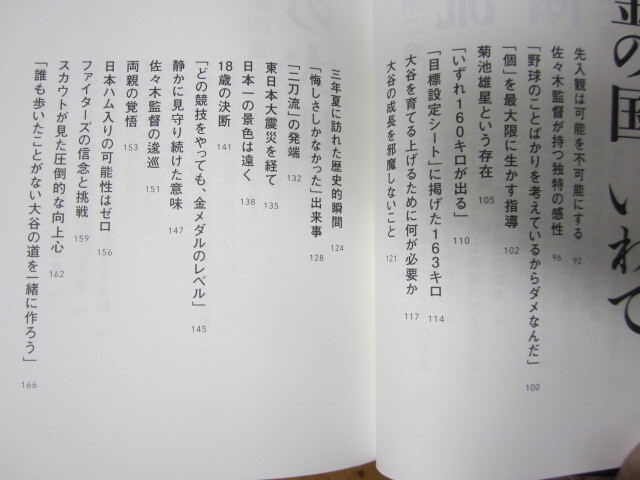 の国 いわて
先入観は可能を不可能にする 92
佐々木監督が持つ独特の感性 96
「野球のことばかりを考えているからダメなんだ」 100
「個」を最大限に生かす指導 102
菊池雄星という存在 105
「いずれ160キロが出る」 110
「目標設定シート」に掲げた163キロ 114
大谷を育てる上げるために何が必要か 117
大谷の成長を邪魔しないこと 121
三年夏に訪れた歴史的瞬間 124
「悔しさしかなかった」出来事 128
「二刀流」の発端 132
東日本大震災を経て 135
日本一の景色は遠く 138
18歳の決断 141
「どの競技をやっても、金メダルのレベル」 145
静かに見守り続けた意味 147
佐々木監督の逡巡 151
両親の覚悟 153
日本ハム入りの可能性はゼロ 156
ファイターズの信念と挑戦 159
スカウトが見た圧倒的な向上心 162
「誰も歩いたことがない大谷の道を一緒に作ろう」 166